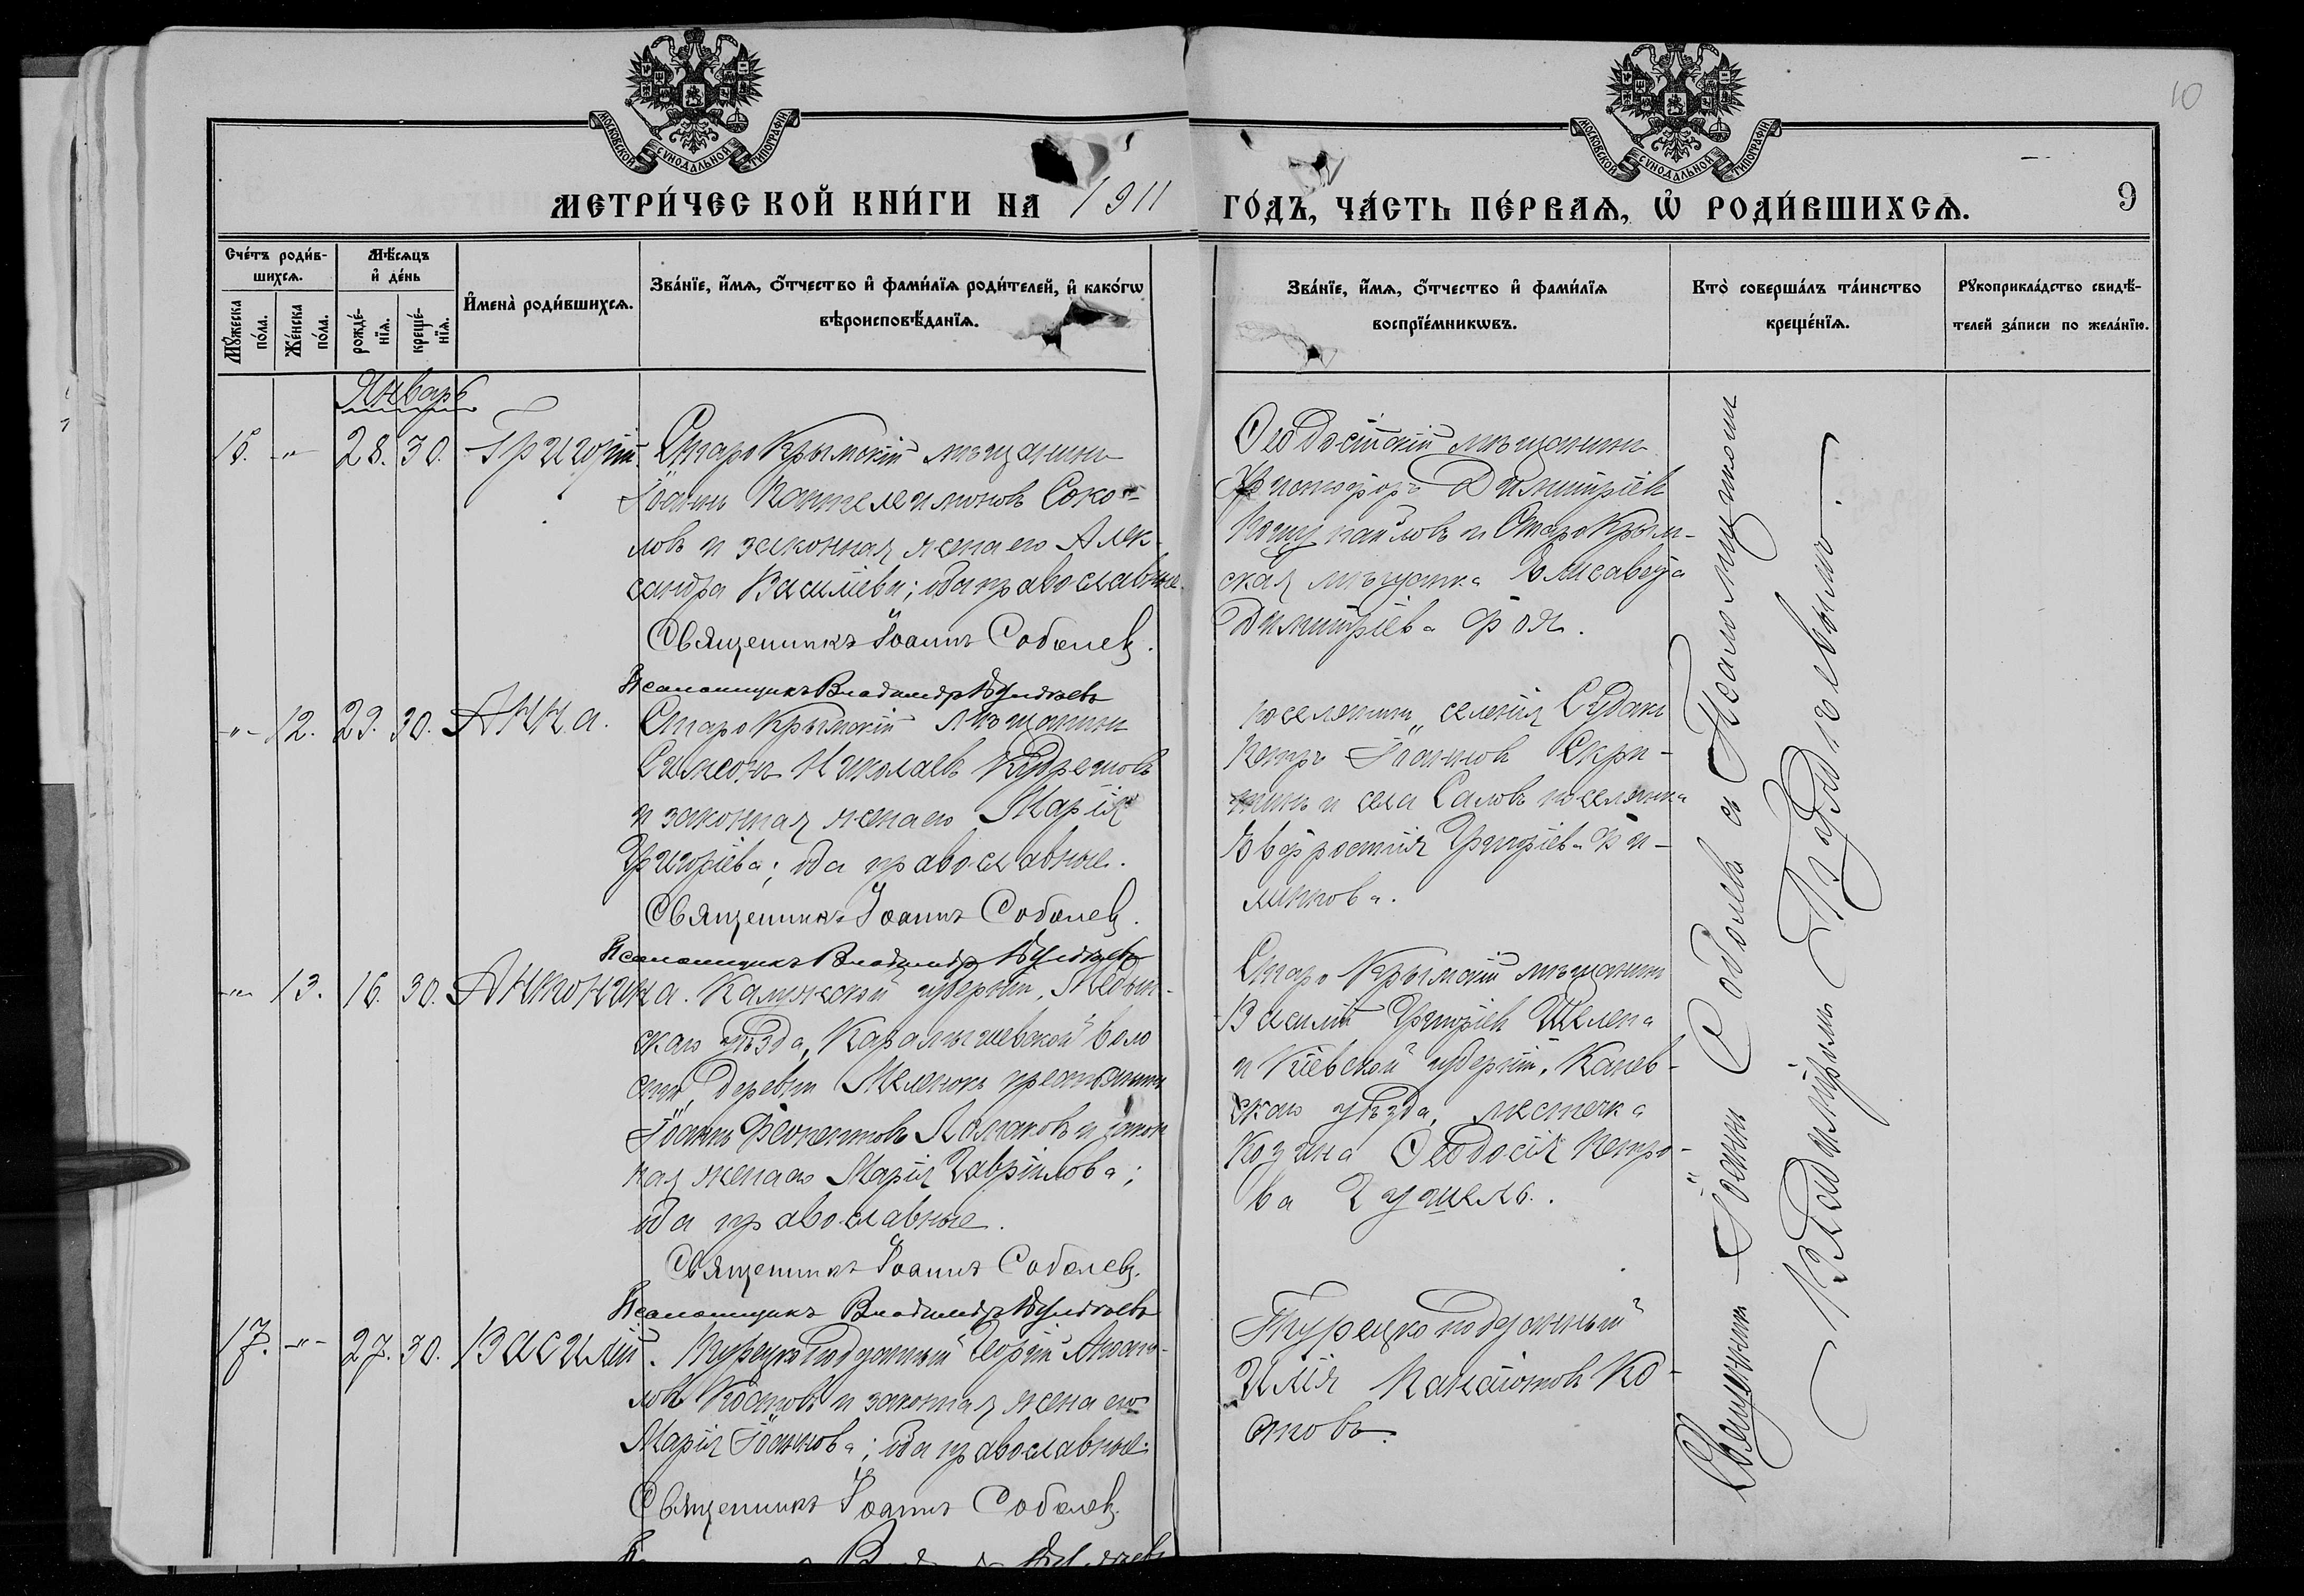 10
МОСКОВСКОЙ СѴНОДАЛЬНОЙ ТИПОГРАФІИ
МОСКОВСКОЙ СѴНОДАЛЬНОЙ ТИПОГРАФІИ
МЕТРИ́ЧЕСКОЙ КНИ́ГИ НА 1911 ГО́ДЪ, ЧА́СТЬ ПЕ́РВАѦ, Ѡ҆ РОДИ́ВШИХСѦ.
9
Сче́тъ роди́в-
шихсѧ.
Мꙋ́жеска по́ла.
Же́нска по́ла.
Мѣ́сѧцъ
и҆ де́нь
рожде́-
нїѧ.
креще́-
нїѧ.
И҆мена̀ роди́вшихсѧ.
Зва́нїе, и҆́мѧ, ѻ҆́тчество и҆ фами́лїѧ роди́телей, и҆ како́гѡ
вѣроисповѣ́данїѧ.
Зва́нїе, и҆́мѧ, ѻ҆́тчество и҆ фами́лїѧ
воспрїе́мникѡвъ.
Кто̀ соверша́лъ та́инство
креще́нїѧ.
Рꙋкоприкла́дство свидѣ́-
телей за́писи по жела́нїю.
Январь
16. -"- 28. 30. Григорій.
СтароКрымскій мѣщанинъ
Іоаннъ Пантелеимоновъ Соко-
ловъ и законная жена его Алек-
сандра Василіева; оба православные.
Священникъ Іоаннъ Соболевъ.
Псаломщикъ Владимиръ
Ѳеодосійскій мѣщанинъ
Димитріевъ
и СтароКрым-
ская мѣщанка Елисавета
Димитріева
-"- 12. 29. 30. Анна.
СтароКрымскій мѣщанинъ
Симеонъ Николаевъ
и законная жена его Марія
Григоріева; оба православные.
Священникъ Іоаннъ Соболевъ.
Псаломщикъ Владимиръ
Поселянинъ селенія Судакъ
Петръ Іоанновъ Скри-
и села Саловъ поселянка
Григоріева
-"- 13. 16. 30. Антонина.
Калужской губерніи, Медын-
скаго уѣзда, воло
сти, деревни крестьянинъ
Іоаннъ и закон
ная жена его Марія Гавріилова;
оба православные.
Священникъ Іоаннъ Соболевъ.
Псаломщикъ Владимиръ
СтароКрымскій мѣщанинъ
Василій Григоріевъ Шелека
и Кіевской губерніи, Канев-
скаго уѣзда, местечка
Козина Ѳеодосія Петро-
ва
17. -"- 27. 30. Василій.
Турецко подданный Георгій
Костовъ и законная жена его
Марія Іоаннова; оба православные.
Священникъ Іоаннъ Соболевъ.
Турецко подданный
Илія Ко-
стовъ.
Священникъ Іоаннъ Соболевъ съ Псаломщикомъ
Владиміромъ